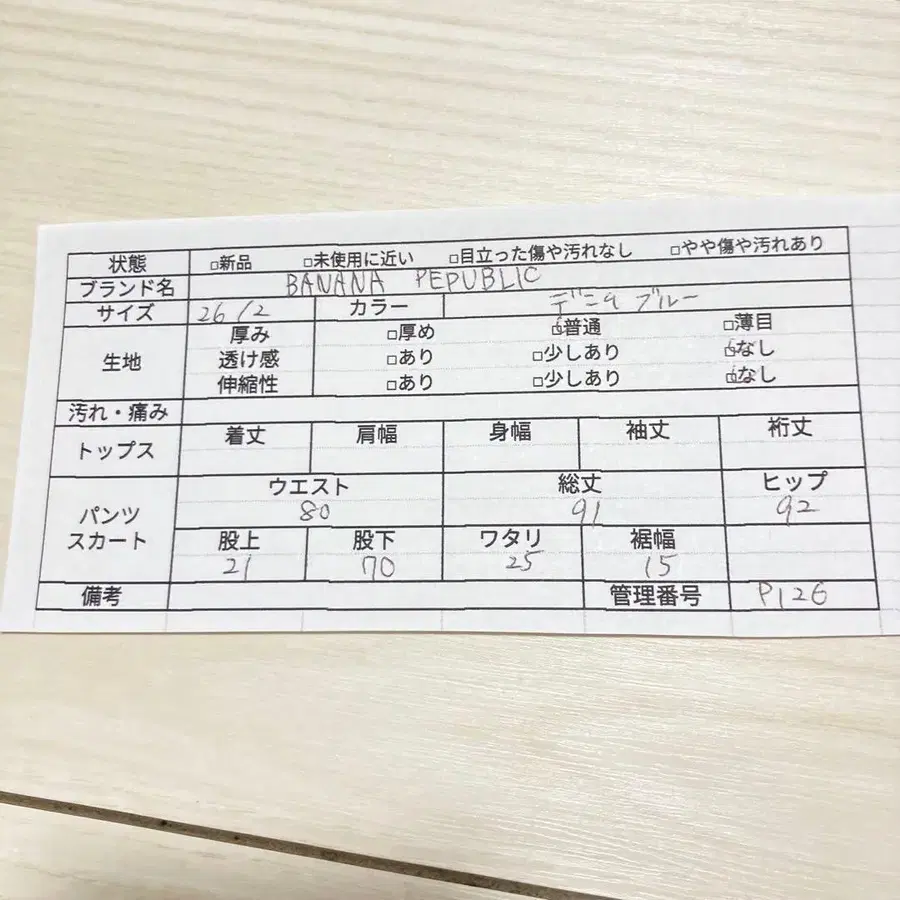 状態 □新品 □未使用に近い □目立った傷や汚れなし □やや傷や汚れあり
ブランド名 BANANA PEPUBLIC
サイズ 26/2 カラー デニム ブルー
生地 厚み □厚め □普通 □薄目
透け感 □あり □少しあり □なし
伸縮性 □あり □少しあり □なし
汚れ・痛み
トップス 着丈 肩幅 身幅 袖丈 裄丈
パンツ スカート ウエスト 総丈 ヒップ
80 91 92
股上 股下 ワタリ 裾幅
21 70 25 15
備考 管理番号 P126